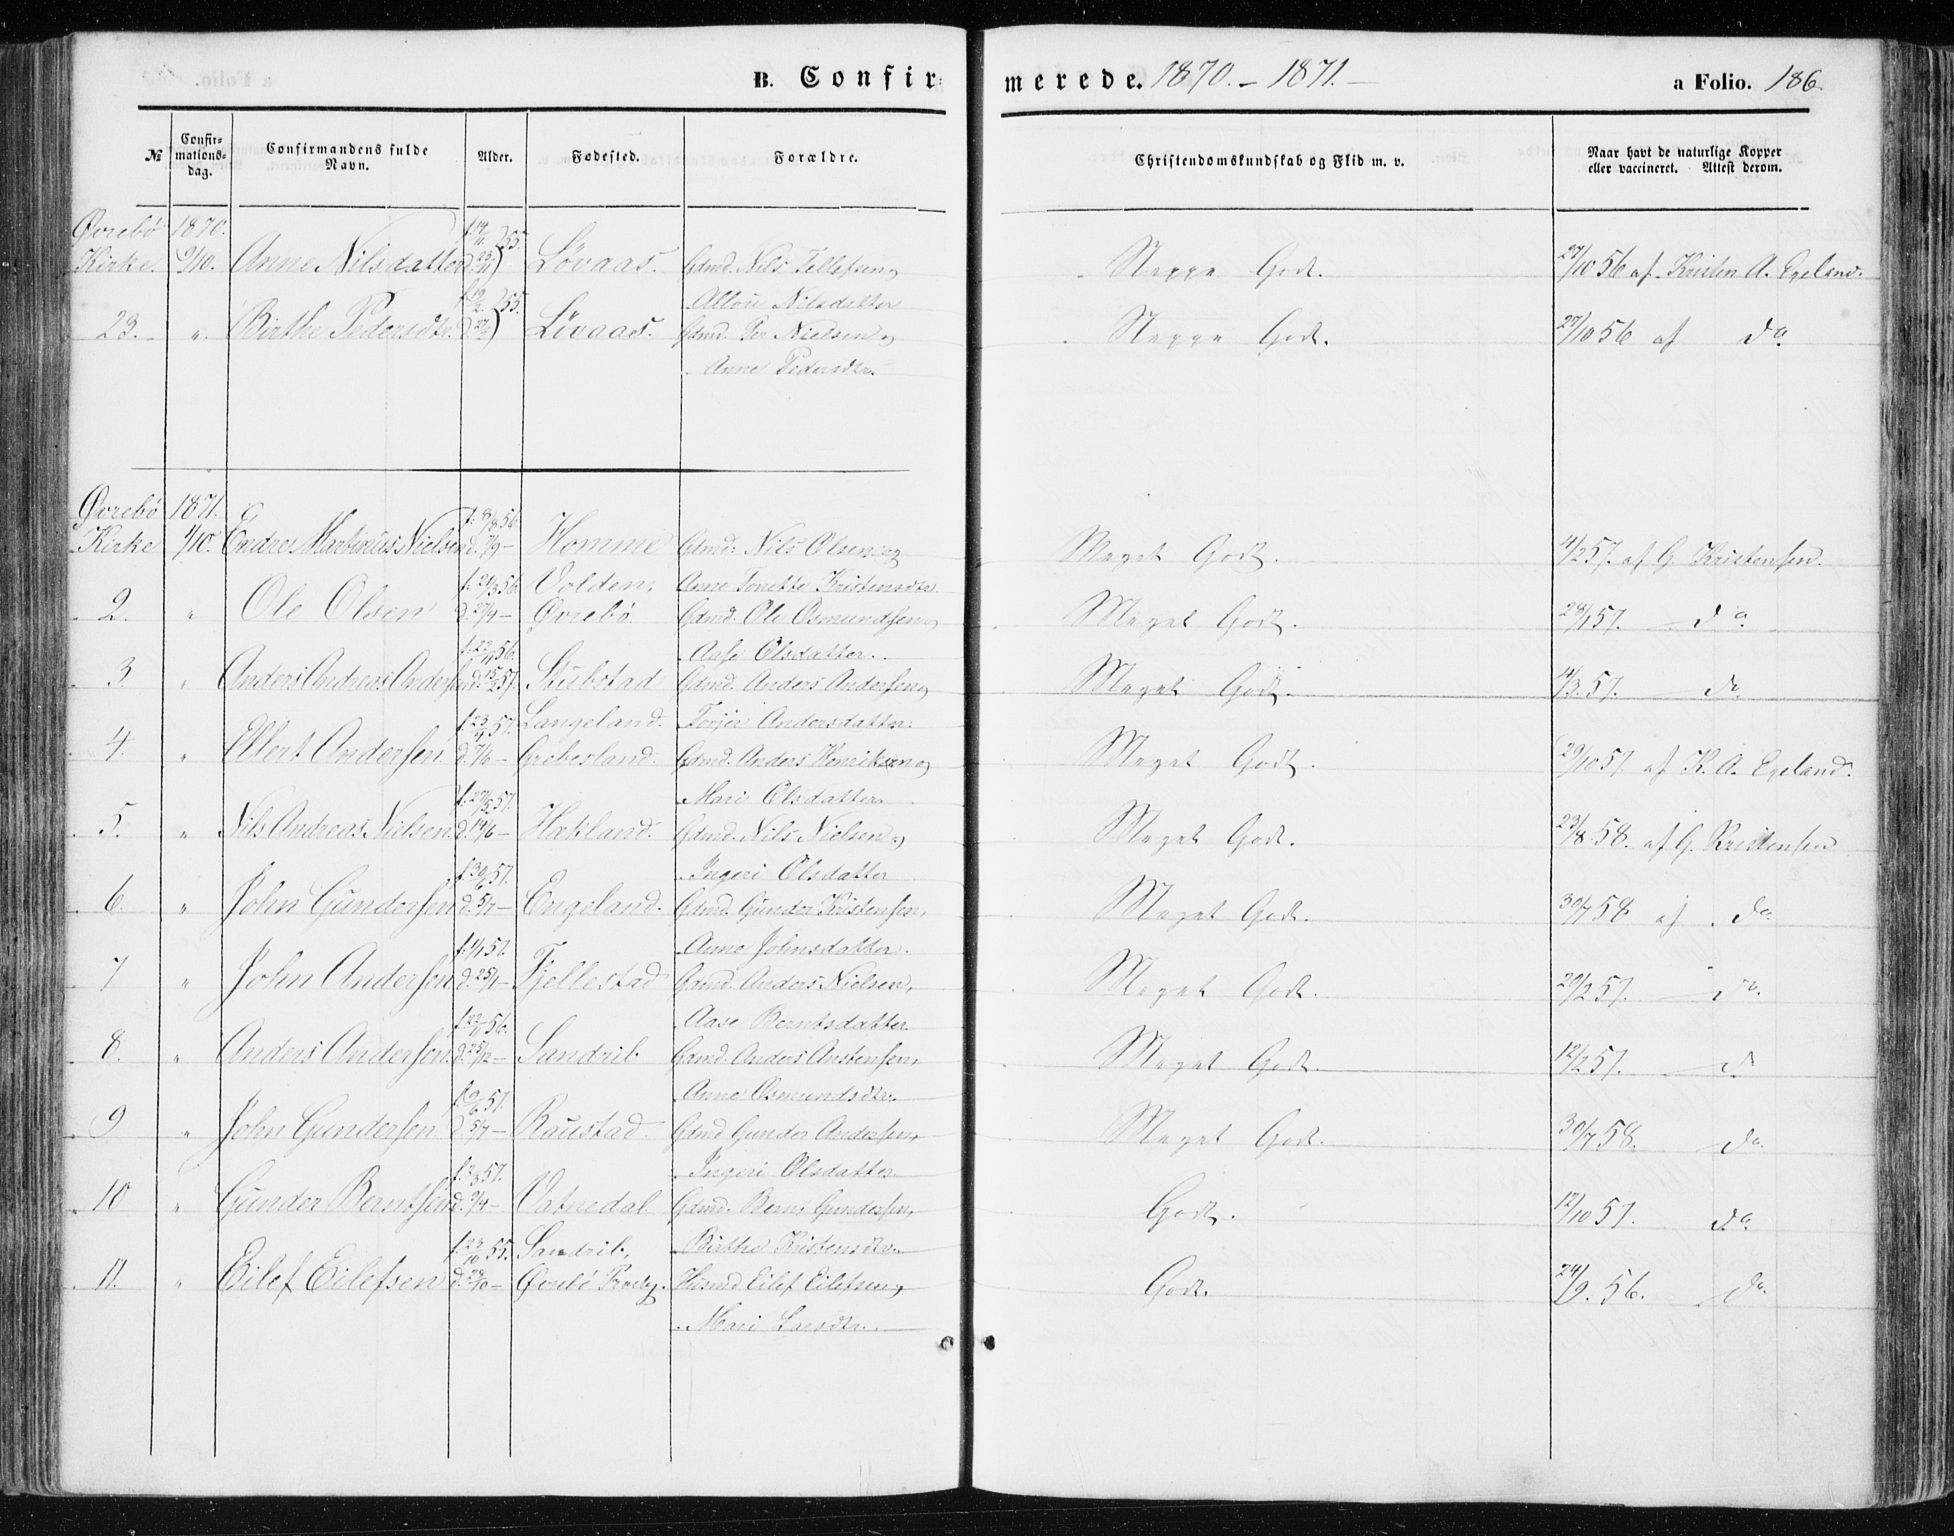 B. Confirmerede. 1870. - 1871. - a Folio. 186.
№ Confirmationsdag. Confirmandens fulde Navn. Alder. Fødested. Forældre. Christendomskundskab og Flid m. v. Naar havt de naturlige Kopper eller vaccineret. Attest derom.
Øvrebö 1870.
Kirke. 9/10. Anne Nilsdatter 55. Lövaas. Gdmd. Nils Tellefsen og Neppe Godt. 27/10 56 af Kristen A. Egeland.
Nilsdatter
23. " Birthe Pedersdtr. 55. Lövaas. Gdmd. Per Nielsen og Neppe Godt. 27/10 56 af do
Anne Pedersdtr.
Øvrebö 1871. f. 8/8 56.
Kirke 1/10. Endre Martinius Nielsen d. 7/9 - Homme Gdmd: Nils Olsen og Meget Godt. 4/2 57. af G. Kristensen.
f. 21/3 56. Volden, Anne Tonette Kristensdtr
2. " Ole Olsen d. 27/4 - Øvrebö. Gdmd. Ole Osmundsen og Meget Godt. 28/1 57. do.
f. 22/11 56. Aase Olsdatter.
3. " Anders Andreas Andersen d. 15/2 57. Stubstad Gdmd. Anders Andersen og Meget Godt. 4/3 57. do
f. 23/4 57. Langeland. Torjer Andersdatter.
4. " Ellert Andersen d. 7/6 - Grebesland. Gdmd. Anders Henriksen og Meget Godt. 29/10 57 af K. A. Egeland.
f. 27/5 57. Mari Olsdatter
5. " Nils Andreas Nielsen d. 14/6 - Hækland. Gdmd. Nils Nielsen og Meget Godt. 23/8 58. af G. Kristensen
f. 30/6 57. Ingeri Olsdatter
6. " John Gundersen d. 5/7 - Engeland. Gdmd. Gunder Kristensen, Meget Godt. 30/7 58 af do
f. 1/1 57. Anne Johnsdatter.
7 " John Andersen d. 25/1 - Fjellestad Gdmd. Anders Nielsen, Meget Godt. 20/2 57. do.
56. Aase Berntsdatter.
8. " Anders Andersen d. 25/12 - Sandrib Gdmd. Anders Anstensen, Meget Godt. 12/2 57. do
57. Anne Osmundsdtr.
9 " John Gundersen d. 5/7 - Raustad. Gdmd Gunder Andersen, Meget Godt. 30/7 58. do.
f. 3/3 57. Ingeri Olsdatter
10 " Gunder Berntsen d. 9/4 - Vatnedal Gdmd. Bernt Gundersen, Godt. 12/10 57. do
f. 23/10 55. Sandrib, Birthe Kristensdtr.
11. " Eilef Eilefsen d. 28/10 - Øvrebö Præstg. Husmd Eilef Eilefsen og Godt. 24/9. 56. do.
Mari Larsdtr.